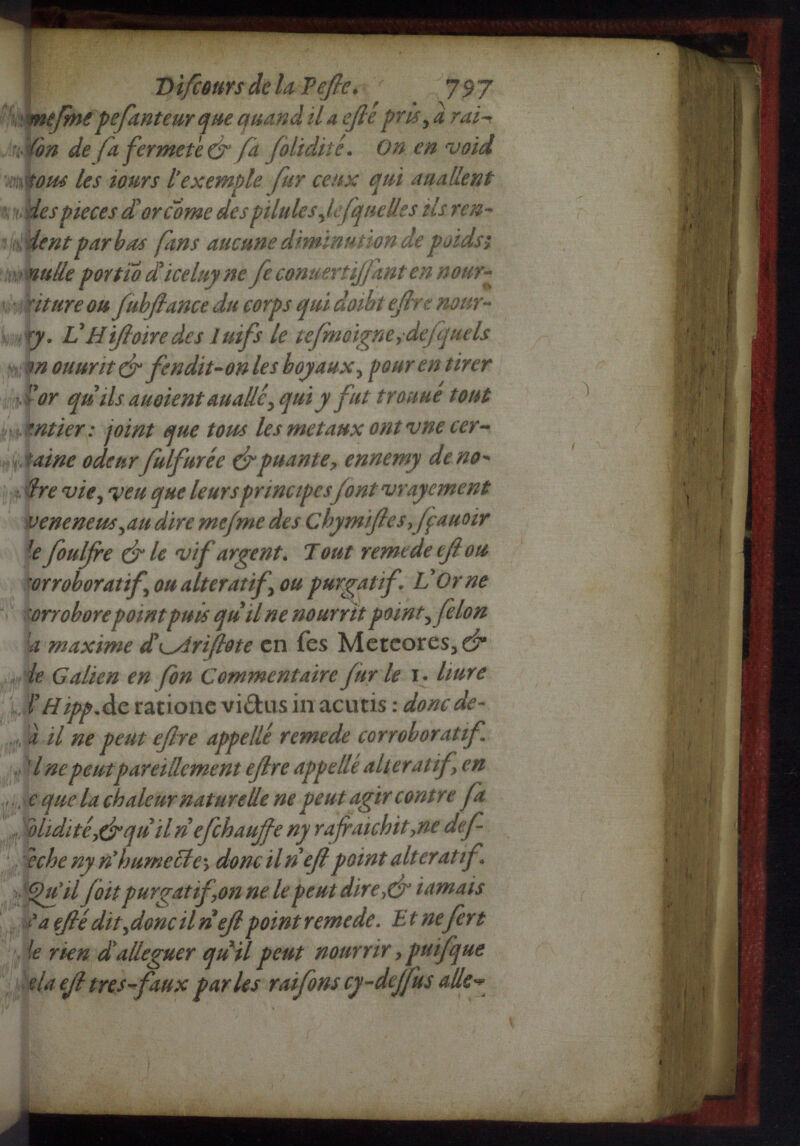 Diſcours de la Peſte. 797
meſme peſanteur que quand il a eſté pris, à rai-
ſon de ſa fermeté & ſa ſolidité. On en void
tous les iours l'exemple ſur ceux qui auallent
des pieces d'or cõme des pilules, leſquelles ils ren-
dent par bas ſans aucune diminution de poids;
nulle portiõ d'iceluy ne ſe conuertiſſant en nour-
riture ou ſubſtance du corps qui doibt eſtre nour-
ry. L'Hiſtoire des Iuifs le teſmoigne, deſquels
on ouurit & fendit-on les boyaux, pour en tirer
l'or qu'ils auoient auallé, qui y fut trouué tout
entier: joint que tous les metaux ont vne cer-
taine odeur ſulfurée & puante, ennemy de no-
ſtre vie, veu que leurs principes ſont vrayement
veneneus, au dire meſme des Chymiſtes, ſçauoir
le ſoulfre & le vif argent. Tout remede eſt ou
corroboratif, ou alteratif, ou purgatif. L'Or ne
corrobore point puis qu'il ne nourrit point, ſelon
la maxime d'Ariſtote en ſes Meteores, &
de Galien en ſon Commentaire ſur le 1. liure
d'Hipp. de ratione victus in acutis: donc de-
là il ne peut eſtre appellé remede corroboratif.
Il ne peut pareillement eſtre appellé alteratif, en
ce que la chaleur naturelle ne peut agir contre ſa
ſolidité, & qu'il n'eſchauffe ny rafraichit, ne deſ-
ſeche ny n'humecte; donc il n'eſt point alteratif.
Qu'il ſoit purgatif, on ne le peut dire, & iamais
n'a eſté dit, donc il n'eſt point remede. Et ne ſert
de rien d'alleguer qu'il peut nourrir, puiſque
cela eſt tres-faux par les raiſons cy-deſſus alle-